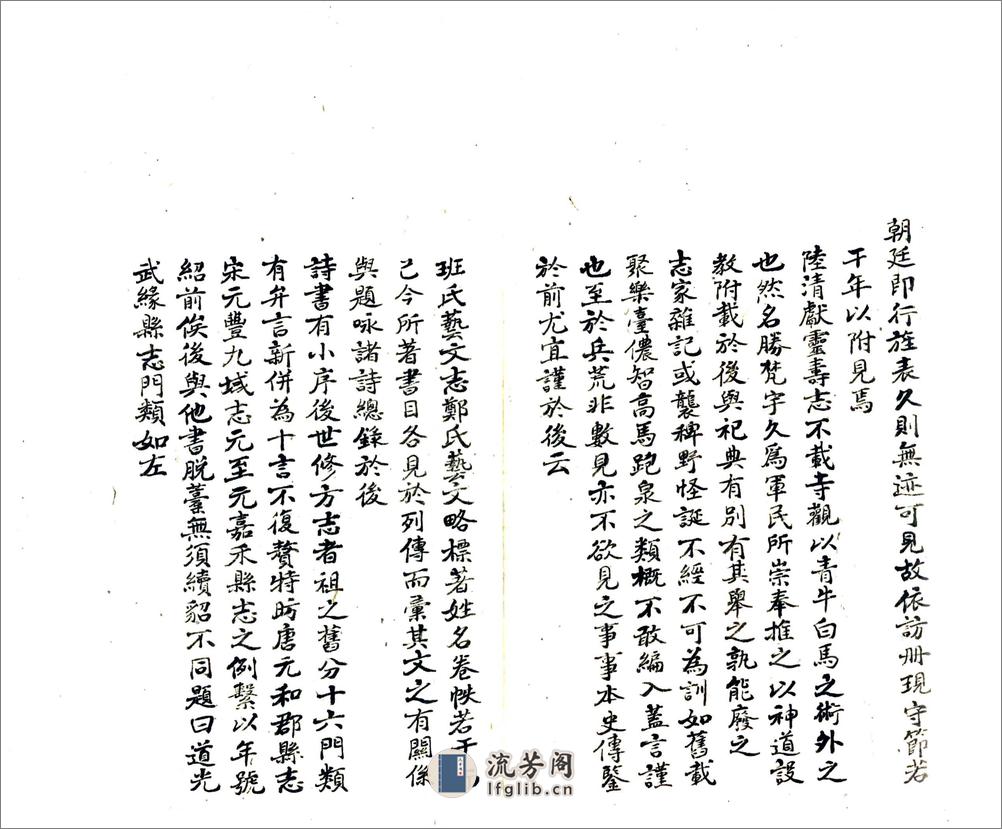 朝廷即行旌表久則無迹可見故依訪册現守節若
干年以附見焉
陸清獻靈壽志不載寺觀以青牛白馬之術外之
也然名勝梵宇久爲軍民所崇奉推之以神道設
教附載於後與祀典有別有其舉之孰能廢之
志家雜記或襲稗野怪誕不經不可為訓如舊載
聚樂臺儂智高馬跑泉之類概不敢編入蓋言謹
也至於兵荒非數見亦不欲見之事事本史傳鑒
於前尤宜謹於後云
班氏藝文志鄭氏藝文略標著姓名卷帙若干
己今所著書目各見於列傳而彙其文之有關係
與題咏諸詩總錄於後
詩書有小序後世修方志者祖之舊分十六門類
有弁言新併為十言不復贅特昉唐元和郡縣志
宋元豐九域志元至元嘉禾縣志之例繫以年號
紹前俟後與他書脫藁無須續貂不同題曰道光
武緣縣志門類如左
流芳阁
lfglib.cn